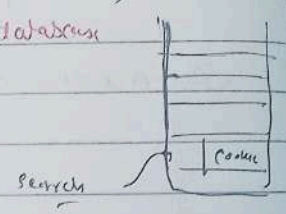 database
Cookie
Search